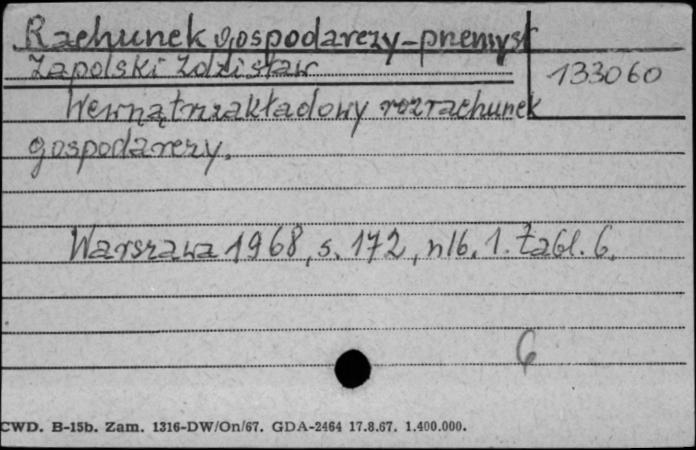 Rachunek gospodarczy-przemysł
133060
Zapolski Zdzisław
Wewnątrzzakładowy rozrachunek
gospodarczy.
Warszawa 1968, s. 172, nlb. 1. Tabl. 6.
6
CWD. B-15b. Zam. 1316-DW/On/67. GDA-2464 17.8.67. 1.400.000.